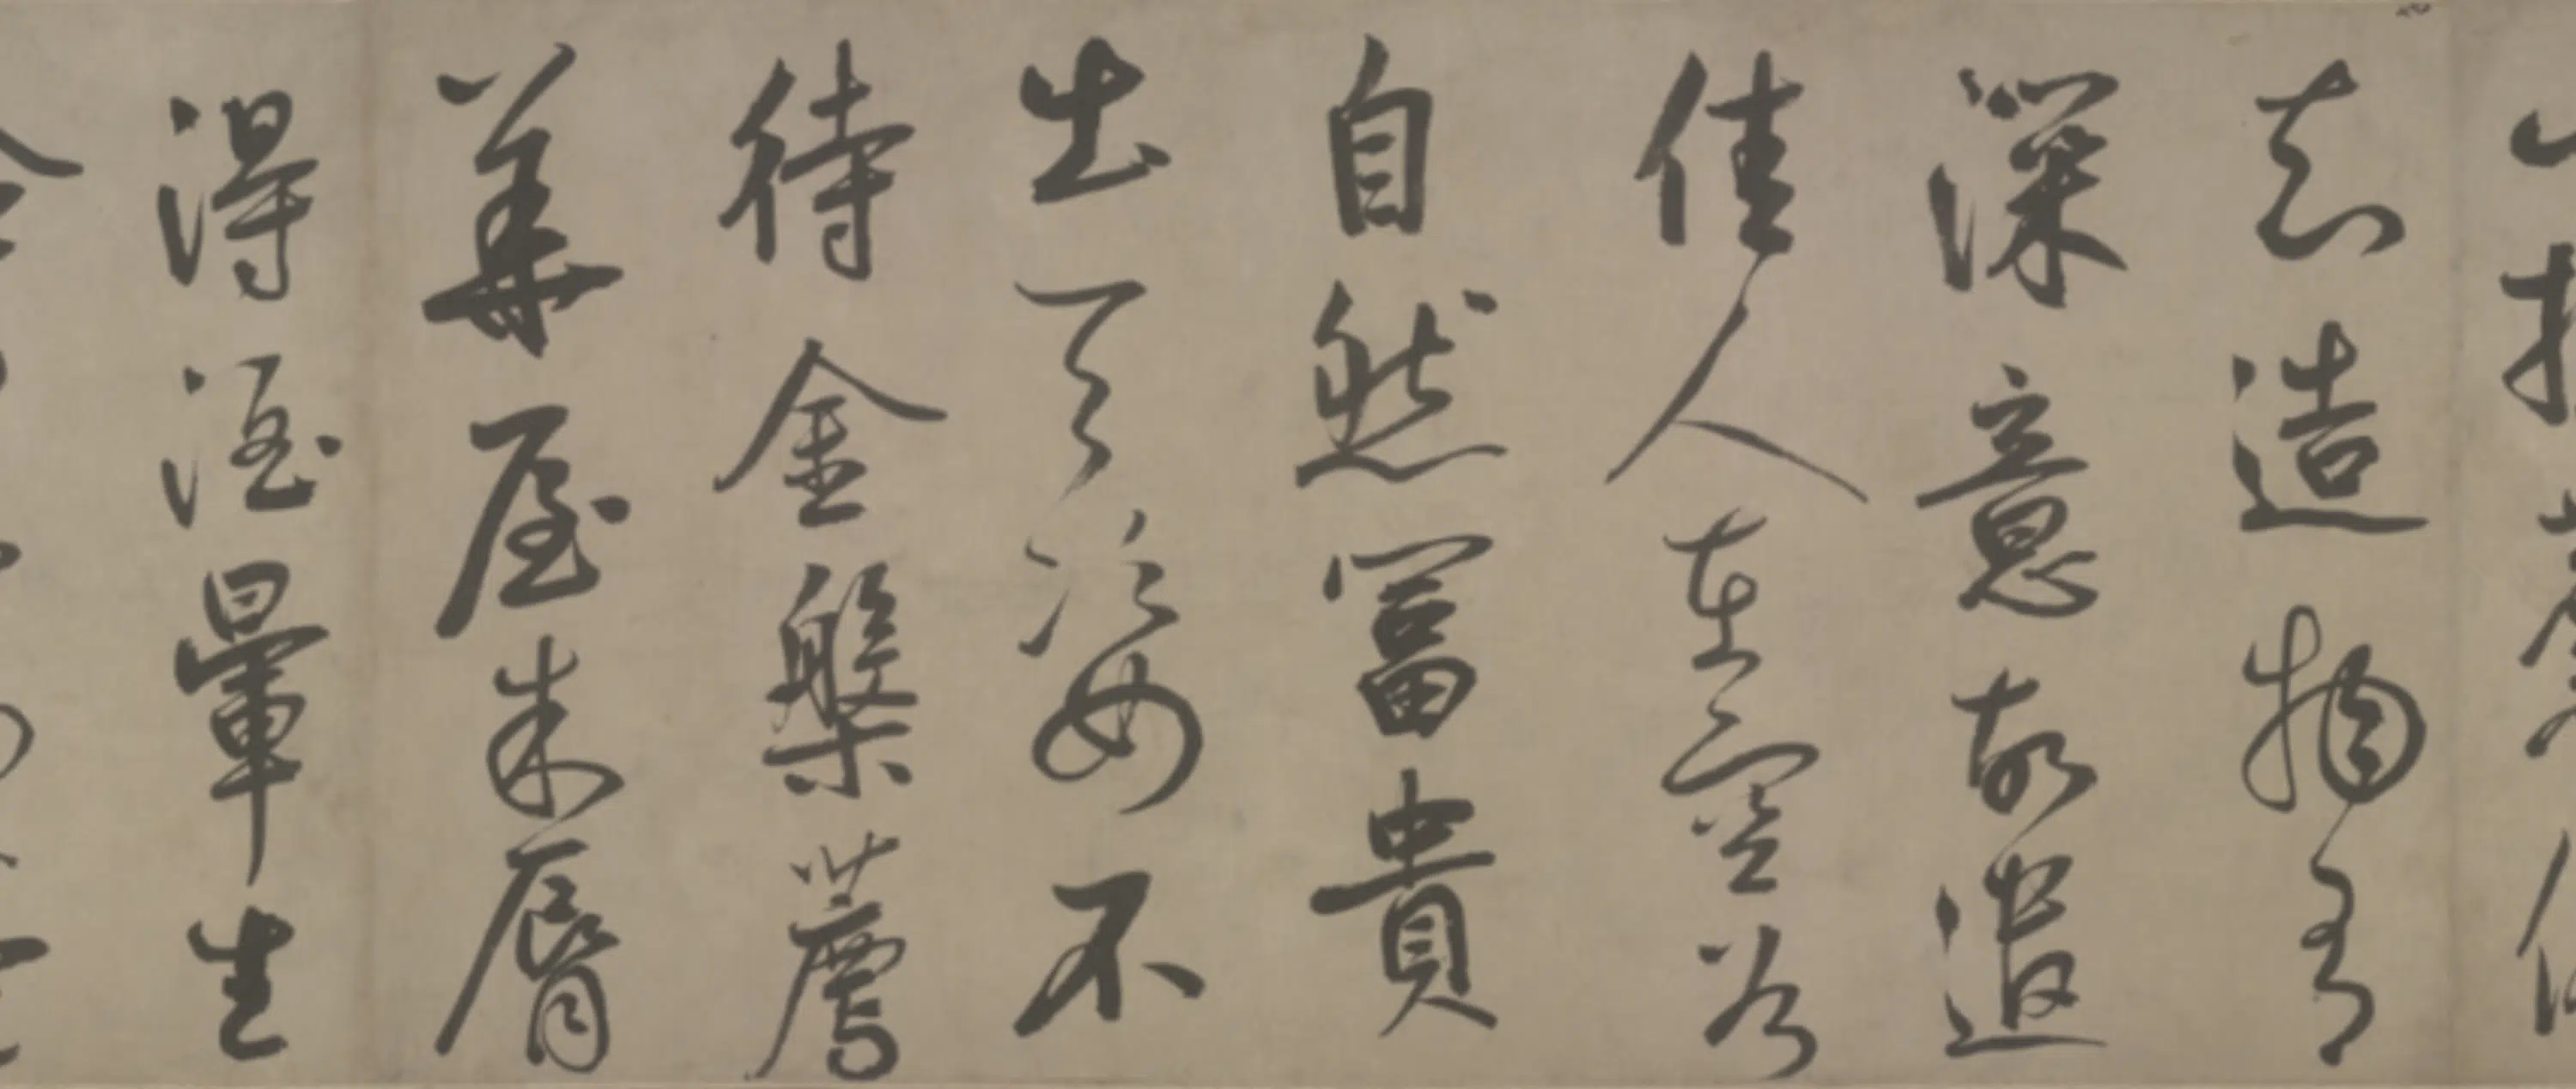 知造物有
深意故遣
佳人在空谷
自然冨貴
出天姿不
待金槃薦
華屋朱脣
得酒暈生